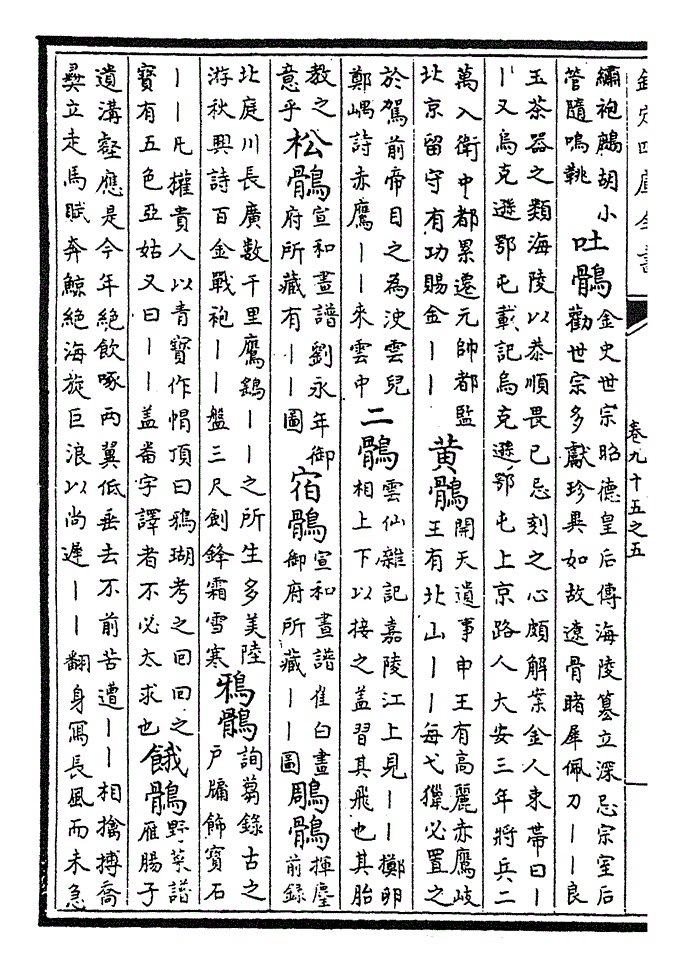 欽定四庫全書
卷九十五之五
繡袍鶻胡小
管隨鳴鞉
吐鶻
金史世宗昭德皇后傳海陵篡立深忌宗室后
勸世宗多獻珍異如故遼骨睹犀佩刀丨丨良
玉茶器之類海陵以恭順畏已忌刻之心頗解案金人束帶曰丨
丨又烏克遜鄂屯載記烏克遜鄂屯上京路人大安三年將兵二
萬入衛中都累遷元帥都監
北京留守有功賜金丨丨
黄鶻
開天遺事申王有高麗赤鷹岐
王有北山丨丨每弋獵必置之
於駕前帝目之為決雲兒
鄭嵎詩赤鷹丨丨來雲中
二鶻
雲仙雜記嘉陵江上見丨丨擲卵
相上下以接之蓋習其飛也其胎
教之
意乎
松鶻
宣和畫譜劉永年御
府所藏有丨丨圖
宿鶻
宣和畫譜崔白畫
御府所藏丨丨圖
鵰鶻
揮麈
前錄
北庭川長廣數千里鷹鷂丨丨之所生多美陸
游秋興詩百金戰袍丨丨盤三尺劍鋒霜雪寒
鴉鶻
詢蒭錄古之
戶牖飾寶石
丨丨凡權貴人以青寶作帽頂曰鴉瑚考之回回之
寳有五色亞姑又曰丨丨蓋畨字譯者不必太求也
餓鶻
野菜譜
雁腸子
遺溝壑應是今年絶飲啄兩翼低垂去不前苦遭丨丨相擒搏喬
彜立走馬賦奔鯨絶海旋巨浪以尚遲丨丨翻身冩長風而未急